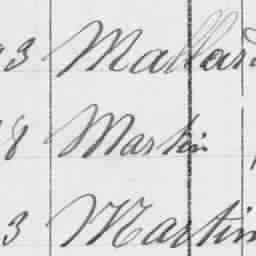 3 Mallard
8 Martin
3 Martin